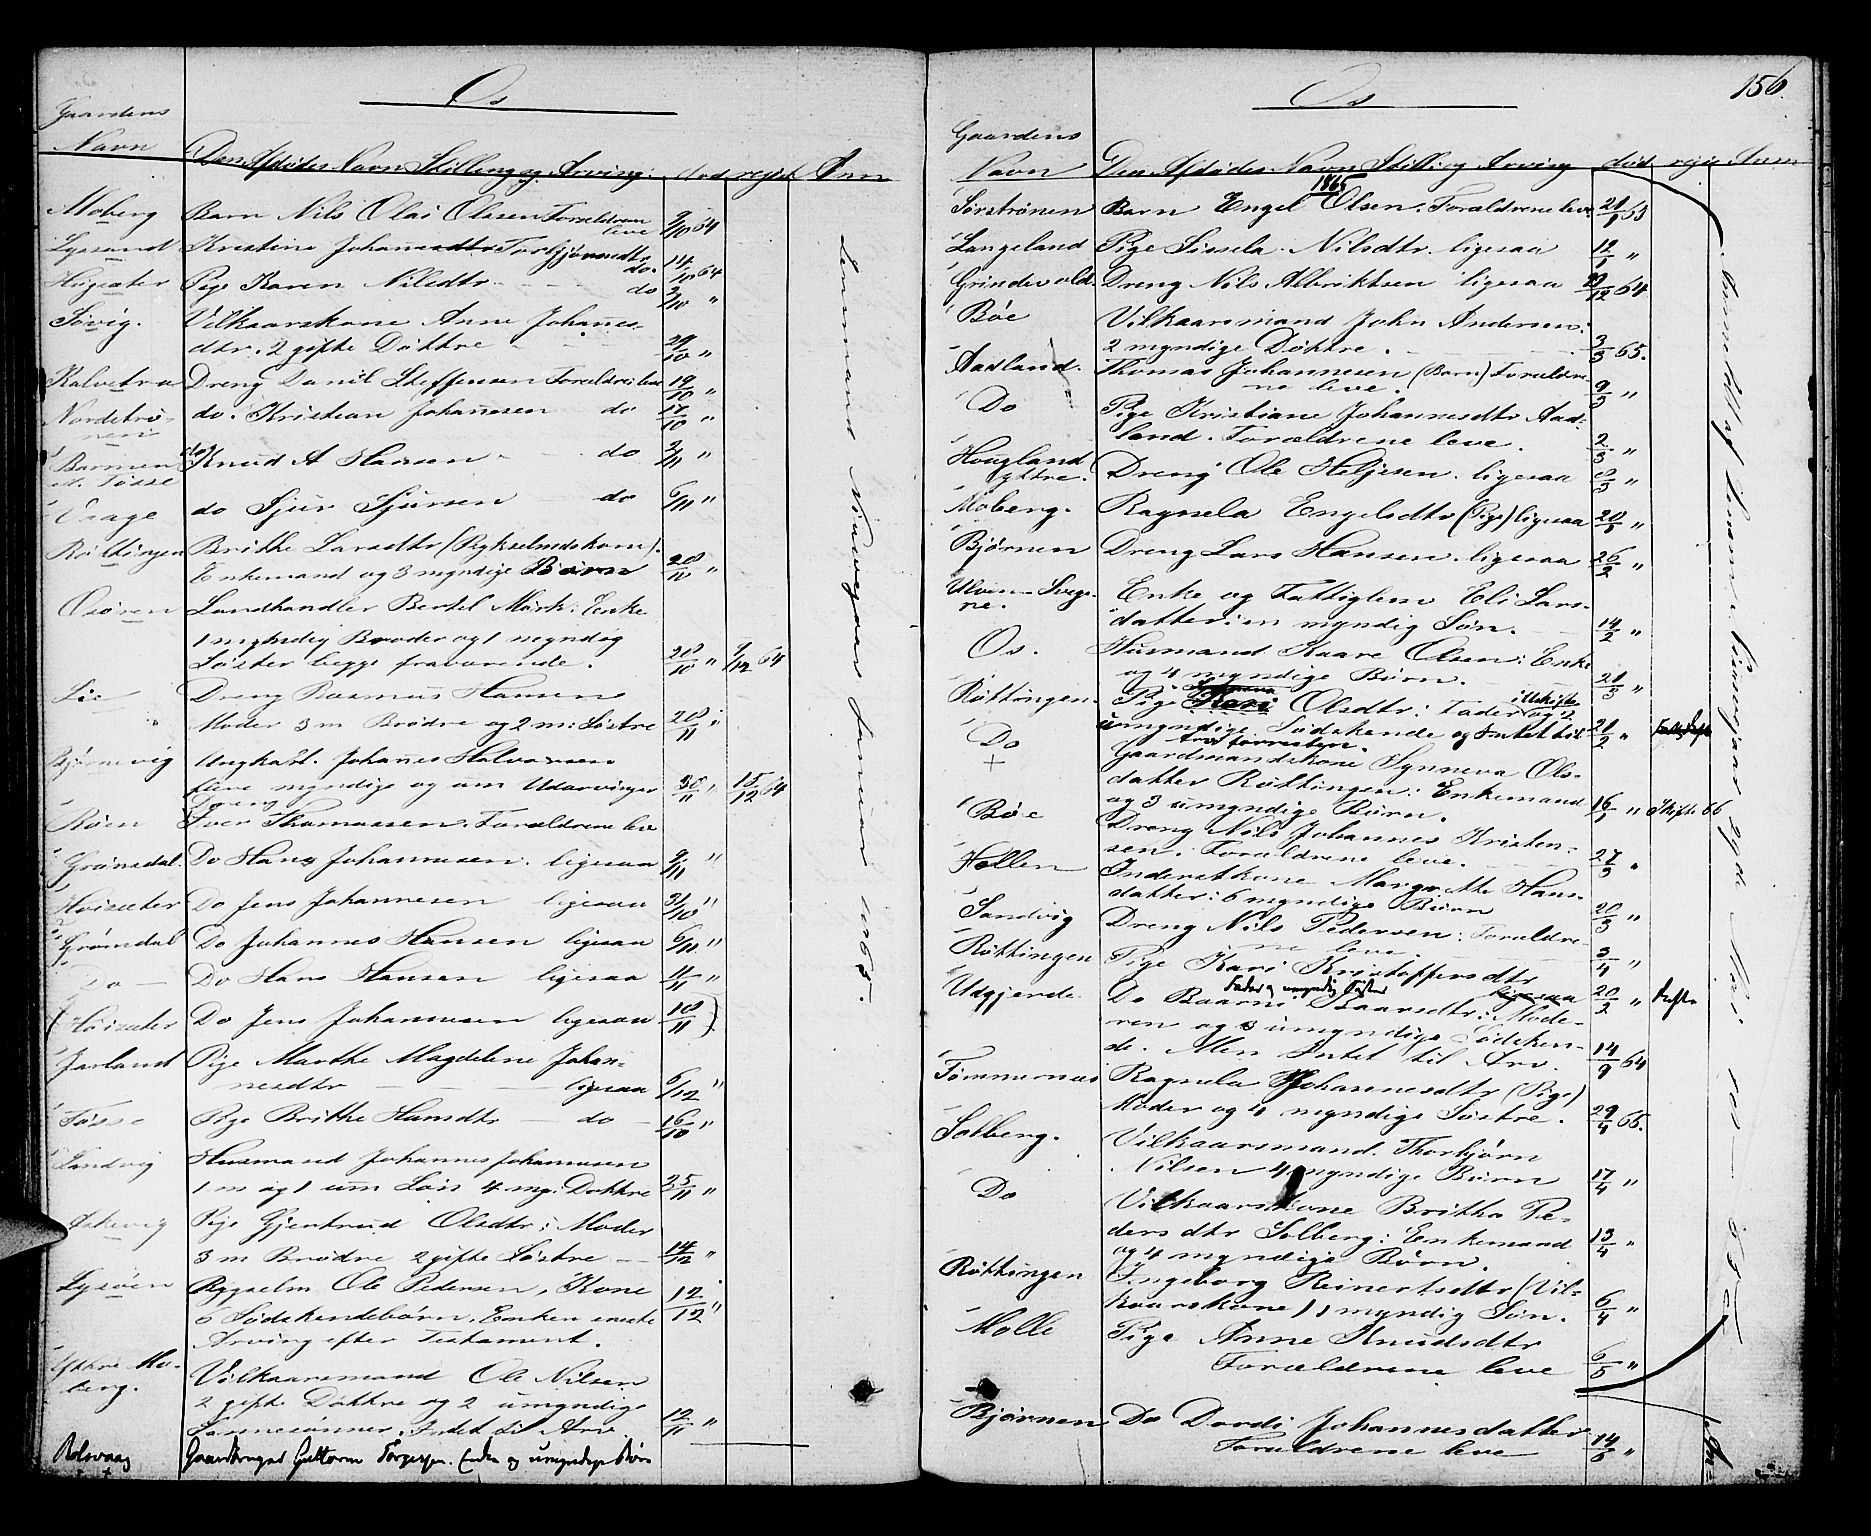 Os
Gaardens
Navn
Den Afdødes Navn Stilling og Arving. død regist Anm
Moberg Barn Nils Olai Olsen Forældrene
leve 9/10 64
Lysand Kristine Johannesdtr Torbjørnsdtr
do. 14/10 64
Hegseter Pige Karen Nilsdtr do 3/10 "
Søvig. Vilkaarskone Anne Johannes-
dtr. 2 gifte Døttre 29/10 "
Kalvetræ Dreng Danil Steffensen Forældre leve 19/10 "
Nordstrø-
nen do. Kristian Johannesen do 17/10 "
Barmen do Knud A Hansen do 3/11 "
N. Tøsse
Vaage do Sjur Sjursen do 6/11 "
Røttingen Brithe Larsdtr (Rykselmdskone).
Enkemand og 3 myndige Børn 20/10 "
Osøren Landhandler Bertel Mørk: Enke
1 myndig Broder og 1 myndig
Søster begge fraværende. 28/10 " 7/12 64
Lie Dreng Rasmus Hansen
Moder 3 m Brødre og 2 m: Søstre 28/11 "
Bjørnevig Ungkarl. Johannes Halvorsen
flere myndige og um Udarvinger 30/11 " 15/12 64
Dreng
Røen Iver Thomassen. Forældrene leve
Grønsdal. Do Hans Johannesen. ligesaa 9/11 "
Høiseter Do Jens Johannesen ligesaa 31/10 "
Grønsdal Do Johannes Hansen ligesaa 6/11 "
Do Do Hans Hansen ligesaa 4/11 "
(Høiseter Do Jens Johannesen ligesaa 18/11 )
Jarland Pige Marthe Magdelene Johan-
nesdtr ligesaa 6/12 "
Tøsse Pige Brithe Hansdtr do 16/10 "
Sandvig Husmand Johannes Johannesen
1 m og 1 um Søn 4 my: Døttre 25/11 "
Pige Gjertrud Olsdtr: Moder
3 m Brødre 2 gifte Søstre 14/12 "
Lysøen Rygselm Ole Pedersen, Kone
6 Sødskendebørn. Enken eneste
Arving efter Testament. 12/12 "
Yttre Mo-
berg. Vilkaarsmand Ole Nilsen
2 gifte Døttre og 2 umyndige
Sønnesønner. Intet til Arv. 12/11 "
Rolsvaag Gaardbruger Guttorm Torgersen. Enke og umyndige Børn
Lensmand Nissevjaas Januar 1865.
Os
156.
Gaardens
Navn Den Afdødes Navn Still: og Arving død regis Anm
1865
Sørstrønen Barn Engel Olsen. Forældrene leve 21/1 65
Langeland Pige Sissela Nilsdtr. ligesaa 12/1 "
Grindevold. Dreng Nils Albriktsen ligesaa 29/12 64
Bøe Vilkaarsmand John Andersen:
2 myndige Døttre. 3/3 65.
Aadland. Thomas Johannesen (Barn) Forældre-
ne leve. 9/3 "
Do Pige Kristiane Johannesdtr Aad-
land. Forældrene leve. 2/3 "
Hougland
yttre. Dreng Ole Heljesen. ligesaa 8/3 "
Moberg. Ragnela Engelsdtr (Pige) ligesaa 20/1 "
Bjørnen Dreng Lars Hansen. ligesaa 26/2 "
Ulven-Svege-
ne. Enke og Fattiglem Eli Lars-
datter: en myndig Søn. 14/2 "
Os. Husmand Kaare Olsen: Enke
og 4 myndige Børn. 21/3 "
Røttingen. Pige Kari Olsdtr: Fader og 2
umyndige Sødskende og Intet til 21/2 "
Do Gaardmandskone Synneva Ols-
datter Røttingen: Enkemand
og 3 umyndige Børn. 16/1 " Skifte 66
Bøe Dreng Nils Johannes Kristen-
sen. Forældrene leve. 27/3 "
Hellen Inderstkone Margrethe Hans-
datter: 6 myndige Børn 20/3 "
Sandvig Dreng Nils Pedersen: Forældre-
ne leve 3/4 "
Røttingen Pige Kari Kristoffersdtr
Fader og umyndig Søster ligesaa 20/2 " Skifte
Udgjerde. Do Baarni Baarsdtr: Mode-
ren og 3 umyndige Sødsken-
de. Men Intet til Arv. 14/9 64
Tømmernæs Ragnela Johannesdtr (Pige)
Moder og 4 myndige Søstre. 29/4 65.
Solberg. Vilkaarsmand Thorbjørn
Nilsen 4 myndige Børn 17/4 "
Do Vilkaarskone Britha Pe-
dersdtr Solberg: Enkemand
og 4 myndige Børn. 13/4 "
Røttingen Ingeborg Reinertsdtr (Vil-
kaarskone) 1 myndig Søn. 6/4 "
Molle Pige Anne Knudsdtr
Forældrene leve 6/5 "
Bjørnen Do Dordi Johannesdatter
Forældrene leve 14/6 "